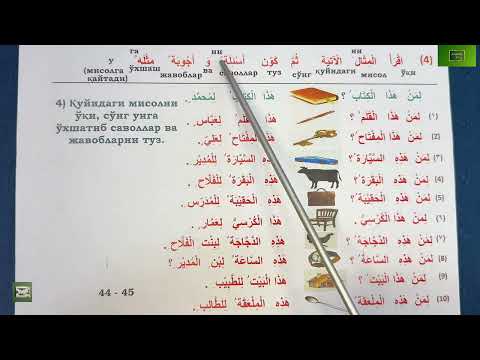 (4) اِقْرَأْ الْمِثَالَ الْآتِيَةَ ثُمَّ كَوِّن أَسْئِلَةً وَ أَجْوِبَةً مِثْلَهُ
га ни ни
ўқи мисол қуйидаги сўнг туз саволлар ва жавоблар ўхшаш у
(мисолга қайтади)
4) Қуйидаги мисолни ўқи, сўнг унга ўхшатиб саволлар ва жавобларни туз.
لِمَنْ هَذَا الْكِتَابُ ؟ هَذَا الْكِتَابُ لِمُحَمَّدٍ .
(١) لِمَنْ هَذَا الْقَلَمُ ؟ هَذَا الْقَلَمُ لِعَبَّاسٍ .
(٢) لِمَنْ هَذَا الْمِفْتَاحُ ؟ هَذَا الْمِفْتَاحُ لِعَلِيٍّ .
(٣) لِمَنْ هَذِهِ السَّيَّارَةُ ؟ هَذِهِ السَّيَّارَةُ لِلْمُدِيرِ .
(4) لِمَنْ هَذِهِ الْبَقَرَةُ ؟ هَذِهِ الْبَقَرَةُ لِلْفَلَّاحِ .
(5) لِمَنْ هَذِهِ الْحَقِيبَةُ ؟ هَذِهِ الْحَقِيبَةُ لِلْمُدَرِّسِ .
(٦) لِمَنْ هَذَا الْكُرْسِيُّ . هَذَا الْكُرْسِيُّ لِعَمَّارٍ .
(٧) لِمَنْ هَذِهِ الدَّجَاجَةُ ؟ هَذِهِ الدَّجَاجَةُ لِبِنْتِ الْفَلَّاحِ .
(8) لِمَنْ هَذِهِ السَّاعَةُ ؟ هَذِهِ السَّاعَةُ لِبْنِ الْمُدِيرِ ؟
(9) لِمَنْ هَذَا الْبَيْتُ ؟ هَذَا الْبَيْتُ لِلطَّبِيْبِ .
(10) لِمَنْ هَذِهِ الْمِلْعَقَةُ ؟ هَذِهِ الْمِلْعَقَةُ لِلطَّالِبِ .
44 - 45